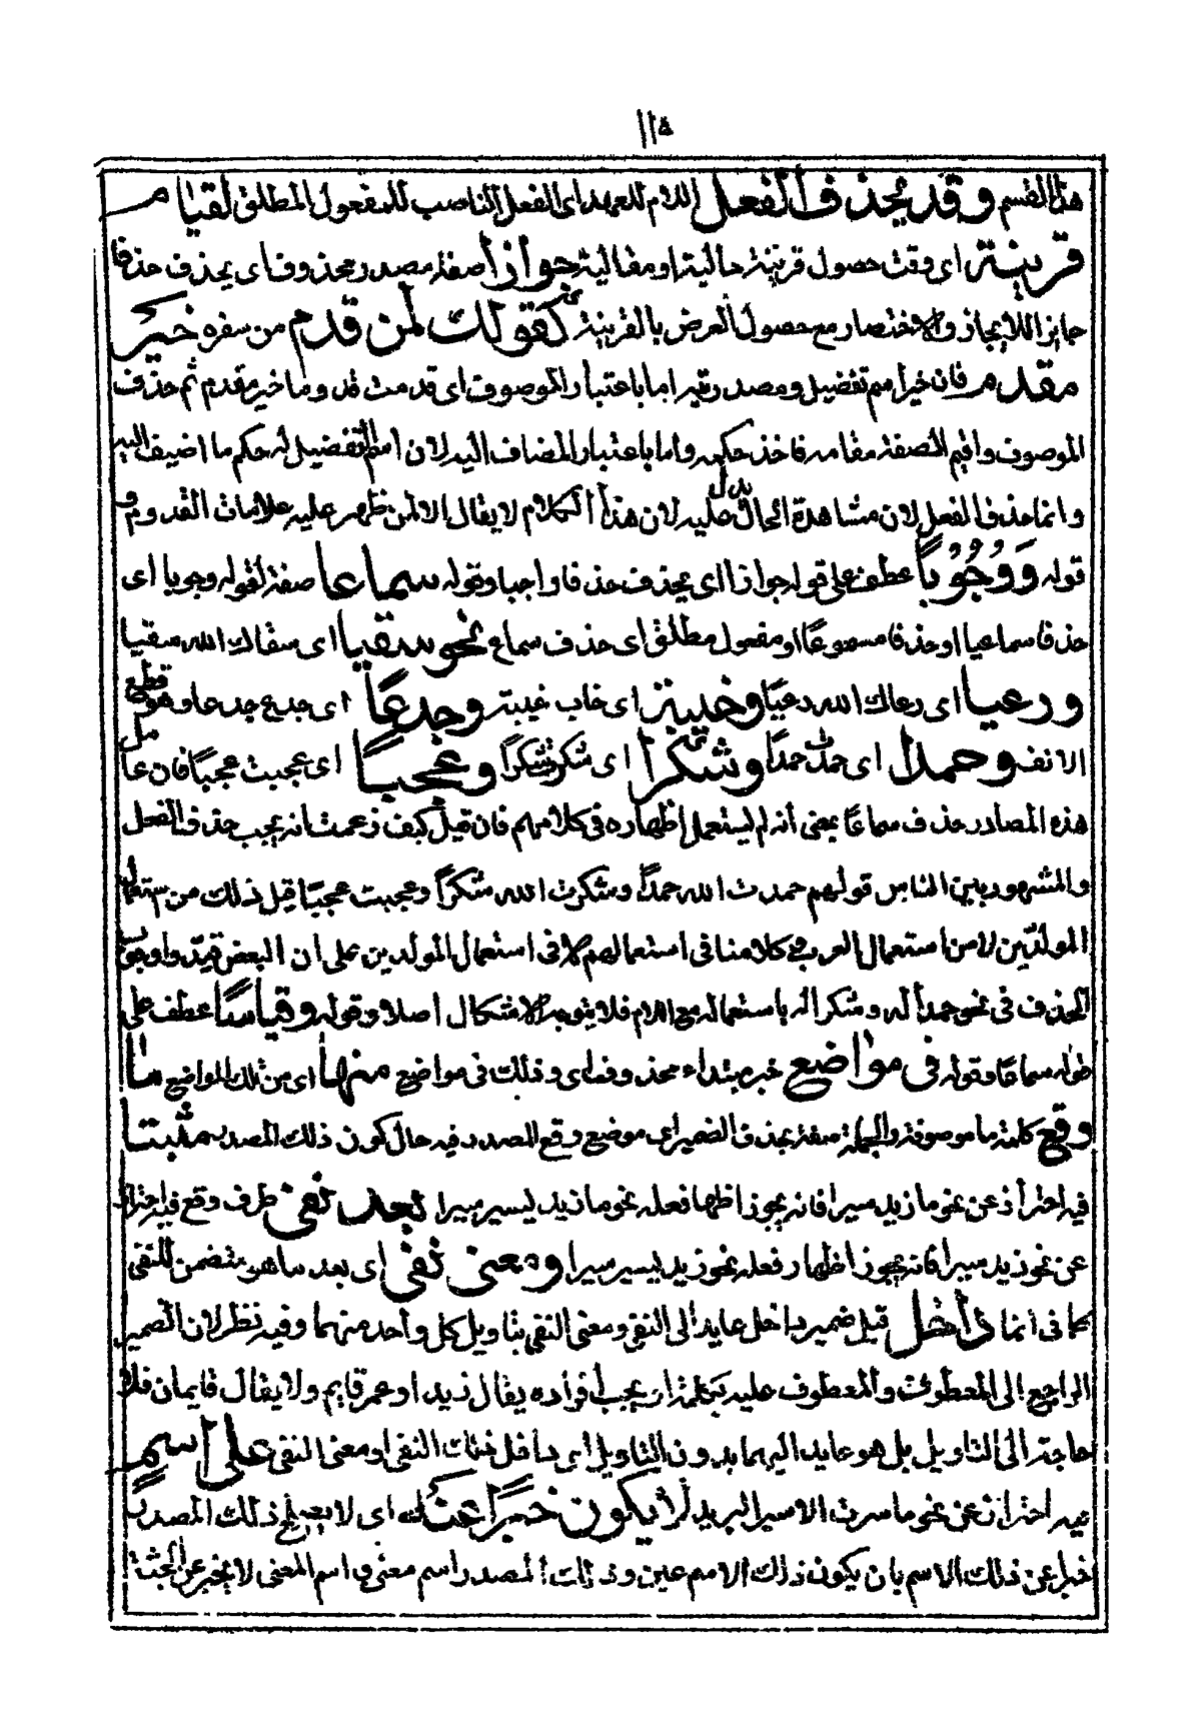 ١١٥
هذا القسم وقد يحذف الفعل اللام للعهد اى الفعل الناصب للمفعول المطلق لقيام
قرينة اى وقت حصول قرينة حالية او مقالية جوازا صفة مصدر محذوف اى يحذف حذفا
جايزا للايجاز والاختصار مع حصول الغرض بالقرينة كقولك لمن قدم من سفره خير
مقدم فان خيرا اسم تفضيل ومصدريته اما باعتبار الموصوف اى قدمت قدوما خير مقدم ثم حذف
الموصوف واقيم الصفة مقامه فاخذ حكمه واما باعتبار المضاف اليه لان اسم التفضيل له حكم ما اضيف اليه
وانما حذف الفعل لان مشاهدة الحال يدل عليه لان هذا الكلام لا يقال الا لمن ظهر عليه علامات القدوم و
قوله ووجوبا عطف على قوله جوازا اى يحذف حذفا واجبا وقوله سماعا صفة لقوله وجوبا اى
حذفا سماعيا او حذفا مسموعا او مفعول مطلق اى حذف سماع نحو سقيا اى سقاك الله سقيا
ورعيا اى رعاك الله رعيا وخيبة اى خاب خيبة وجدعا اى جدع جدعا وهو قطع
الانف وحمدا اى حمدت حمدا وشكرا اى شكرت شكرا وعجبا اى عجبت عجبا فان عامل
هذه المصادر حذف سماعا بمعنى أنه لم يستعمل اظهاره فى كلامهم فان قيل كيف زعمت انه يجب حذف الفعل
والمشهور بين الناس قولهم حمدت الله حمدا وشكرت الله شكرا وعجبت عجبا قيل ذلك من استعمال
المولدين لا من استعمال العرب وكلامنا فى استعمالهم لا فى استعمال المولدين على ان البعض قيد وجوب
الحذف فى نحو حمدا له وشكرا له باستعماله مع اللام فلا يتوجه الاشكال اصلا وقوله وقياسا عطف على
قوله سماعا وقوله فى مواضع خبر مبتداء محذوف اى وذلك فى مواضع منها اى من تلك المواضع ما
وقع كلمة ما موصوفة والجملة صفة بحذف الضمير اى موضع وقع المصدر فيه حال كون ذلك المصدر مثبتا
فيه احترازعن نحو ما زيد سيرا فانه يجوز اظهار فعله نحو ما زيد يسير سيرا بعد نفى ظرف وقع فيه احتراز
عن نحو زيد سيرا فانه يجوز اظهار فعله نحو زيد يسير سيرا ومعنى نفى اى بعد ما هو متضمن للنفى
كما فى انما داخل قيل ضمير داخل عايد الى النفى ومعنى النفى بتاويل كل واحد منهما وفيه نظر لان الضمير
الراجع الى المعطوف والمعطوف عليه يجب افراده يقال زيد او عمر قايم ولا يقال قايمان فلا
حاجة الى التاويل بل هو عايد اليهما بدون التاويل اى داخل ذلك النفى او معنى النفى على اسم
فيه احتراز عن نحو ما سرت الا سير البريد لا يكون خبرا عنه اى لا يصلح ذلك المصدر
خبرا عن ذلك الاسم بان يكون ذلك الاسم عين وذلك المصدر اسم معنى و اسم المعنى لا يخبر عن الجثة